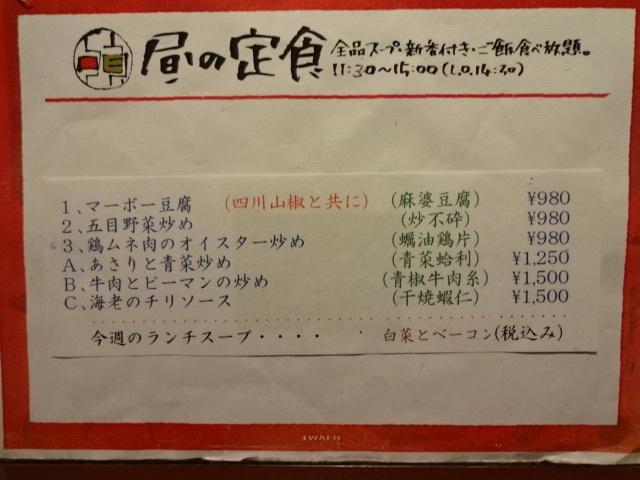 昼の定食 全品スープ・新香付き・ご飯食べ放題。
11:30〜15:00(L.O.14:30)
1、マーボー豆腐 (四川山椒と共に) (麻婆豆腐) ¥980
2、五目野菜炒め (炒不砕) ¥980
3、鶏ムネ肉のオイスター炒め (蠣油鶏片) ¥980
A、あさりと青菜炒め (青菜蛤利) ¥1,250
B、牛肉とピーマンの炒め (青椒牛肉糸) ¥1,500
C、海老のチリソース (干焼蝦仁) ¥1,500
今週のランチスープ・・・・ 白菜とベーコン(税込み)